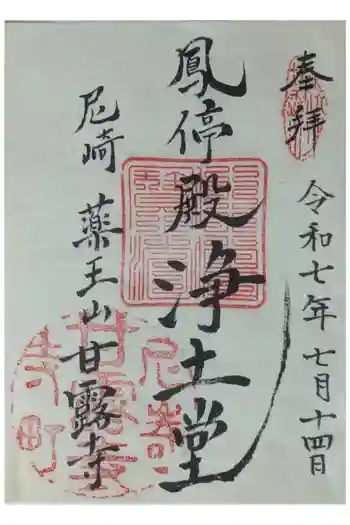 奉拝
令和七年七月十四日
鳳停殿浄土堂
尼崎 薬王山甘露寺
尼崎
甘露寺
寺町